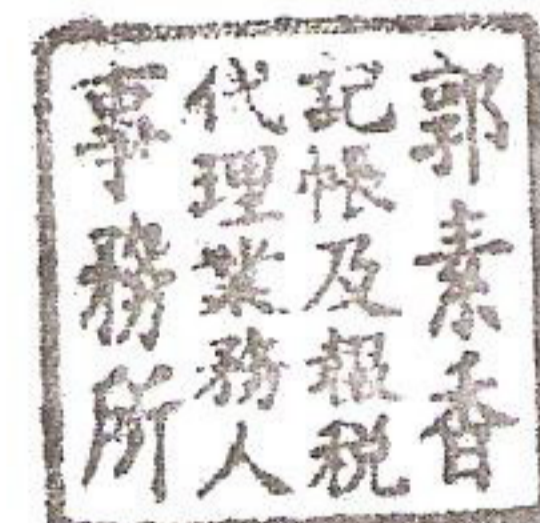 郭素香
記帳及報税
代理業務人
事務所